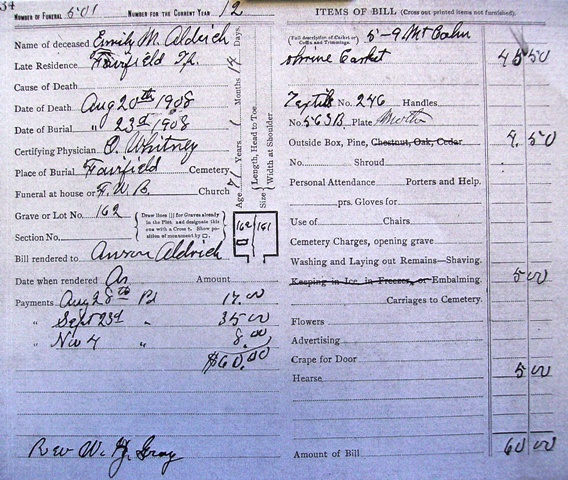 34
NUMBER OF FUNERAL 501 NUMBER FOR THE CURRENT YEAR 12
Name of deceased Emily M. Aldrich
Late Residence Fairfield Tp.
Cause of Death
Date of Death Aug 20th 1908
Date of Burial " 23d 1908
Certifying Physician O. Whitney
Place of Burial Fairfield Cemetery
Funeral at house or F. W. B. Church
Grave or Lot No. 162
Draw lines ||| for Graves already in the Plot and designate this one with a Cross †. Show position of monument by □.
Section No.
162 161
Age 71 Years 1 Months 14 Days.
Size { Length, Head to Toe. Width at Shoulder
Bill rendered to Anson Aldrich
Date when rendered Amount
Payments Aug 28th Pd 17.00
" Sept 23d " 35.00
" Nov 4 " 8.00
$60.00
Rev W. H. Gray
ITEMS OF BILL (Cross out printed items not furnished).
(Full description of Casket or Coffin and Trimmings. 5-9 Mt Calm
Shrine Casket 45 50
Textile No. 246 Handles
No. 563B. Plate
Outside Box, Pine, Chestnut, Oak, Cedar 4 50
No. Shroud
Personal Attendance Porters and Help.
prs. Gloves for
Use of Chairs
Cemetery Charges, opening grave
Washing and Laying out Remains—Shaving.
Keeping in Ice, in Freezer, or Embalming. 5 00
Carriages to Cemetery.
Flowers
Advertising
Crape for Door
Hearse 5 00
Amount of Bill 60 00